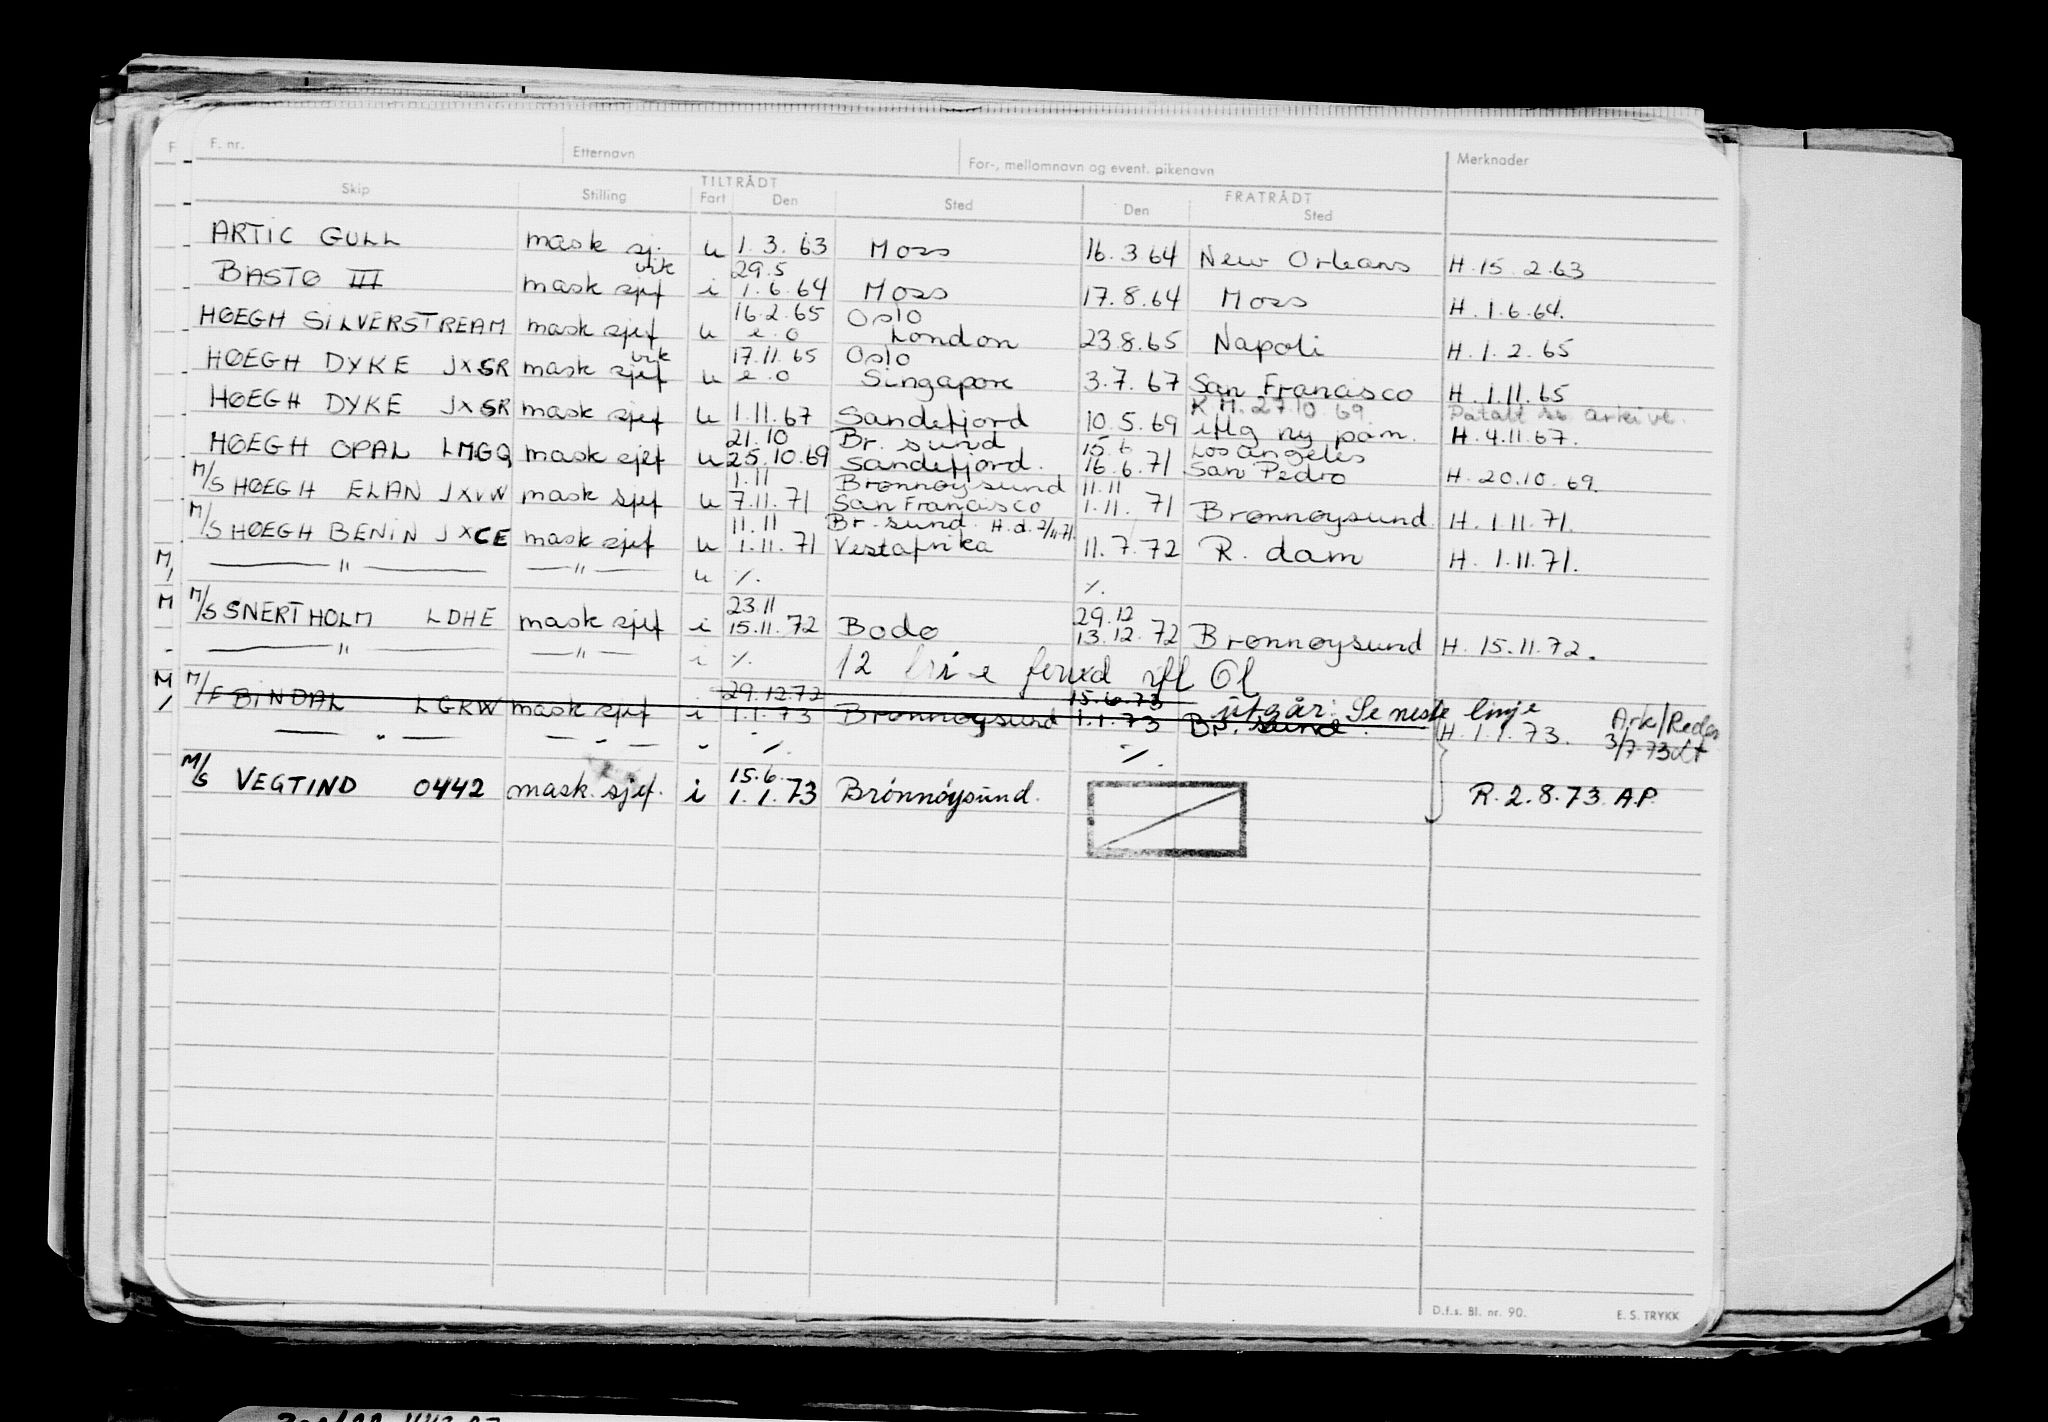 F. nr. Etternavn For-, mellomnavn og event. pikenavn Merknader
TILTRÅDT FRATRÅDT
Skip Stilling Fart Den Sted Den Sted
ARTIC GULL mask sj. u 1.3.63 Moss 16.3 64 New Orleans H.15.2.63
vik 29.5
BASTØ III mask sjef i 1.6.64 Moss 17.8.64 Moss H.1.6.64.
16.2.65 Oslo
HØEGH SILVERSTREAM mask sjef u e.o London 23.8.65 Napoli H.1.2.65
vik 17.11.65 Oslo
HØEGH DYKE JXSR mask sjef u e.o Singapore 3.7.67 San Francisco H.1.11.65
K.M. 27.10.69
HØEGH DYKE JXSR mask sjef u 1.11.67 Sandefjord 10.5.69 iflg ny påm. H.4.11.67.
21.10 Br. sund 15.6 Los angeles
HØEGH OPAL LMGQ mask sjef u 25.10.69 Sandefjord. 16.6.71 San Pedro H.20.10.69.
1.11 Brønnøysund 11.11
M/S HØEGH ELAN JXVW mask sjef u 7.11.71 San Francisco 1.11.71 Brønnøysund H.1.11.71.
11.11 Br. sund. H.d. 2/11.71.
M/S HØEGH BENIN JXCE mask sjef u 1.11.71 Vestafrika 11.7.72 R.dam H.1.11.71.
— " — — " — u ./. ./.
23.11 29.12
M/S SNERTHOLM LDHE mask sjef i 15.11.72 Bodø 13.12.72 Brønnøysund H.15.11.72.
— " — — " — i ./. 12
29.12.72 15.6.73 utgår: Se neste linje
M/F BINDAL LGKW mask sjef i 1.1.73 Brønnøysund 1.1.73 Br. sund. H.1.1.73. Ark/Reder
— " — — " — " ./. ./. 3/7-73
15.6.
M/S VEGTIND 0442 mask. sjef. i 1.1.73 Brønnøysund. R.2.8.73 A.P.
D.f.s. Bl. nr. 90. E. S. TRYKK